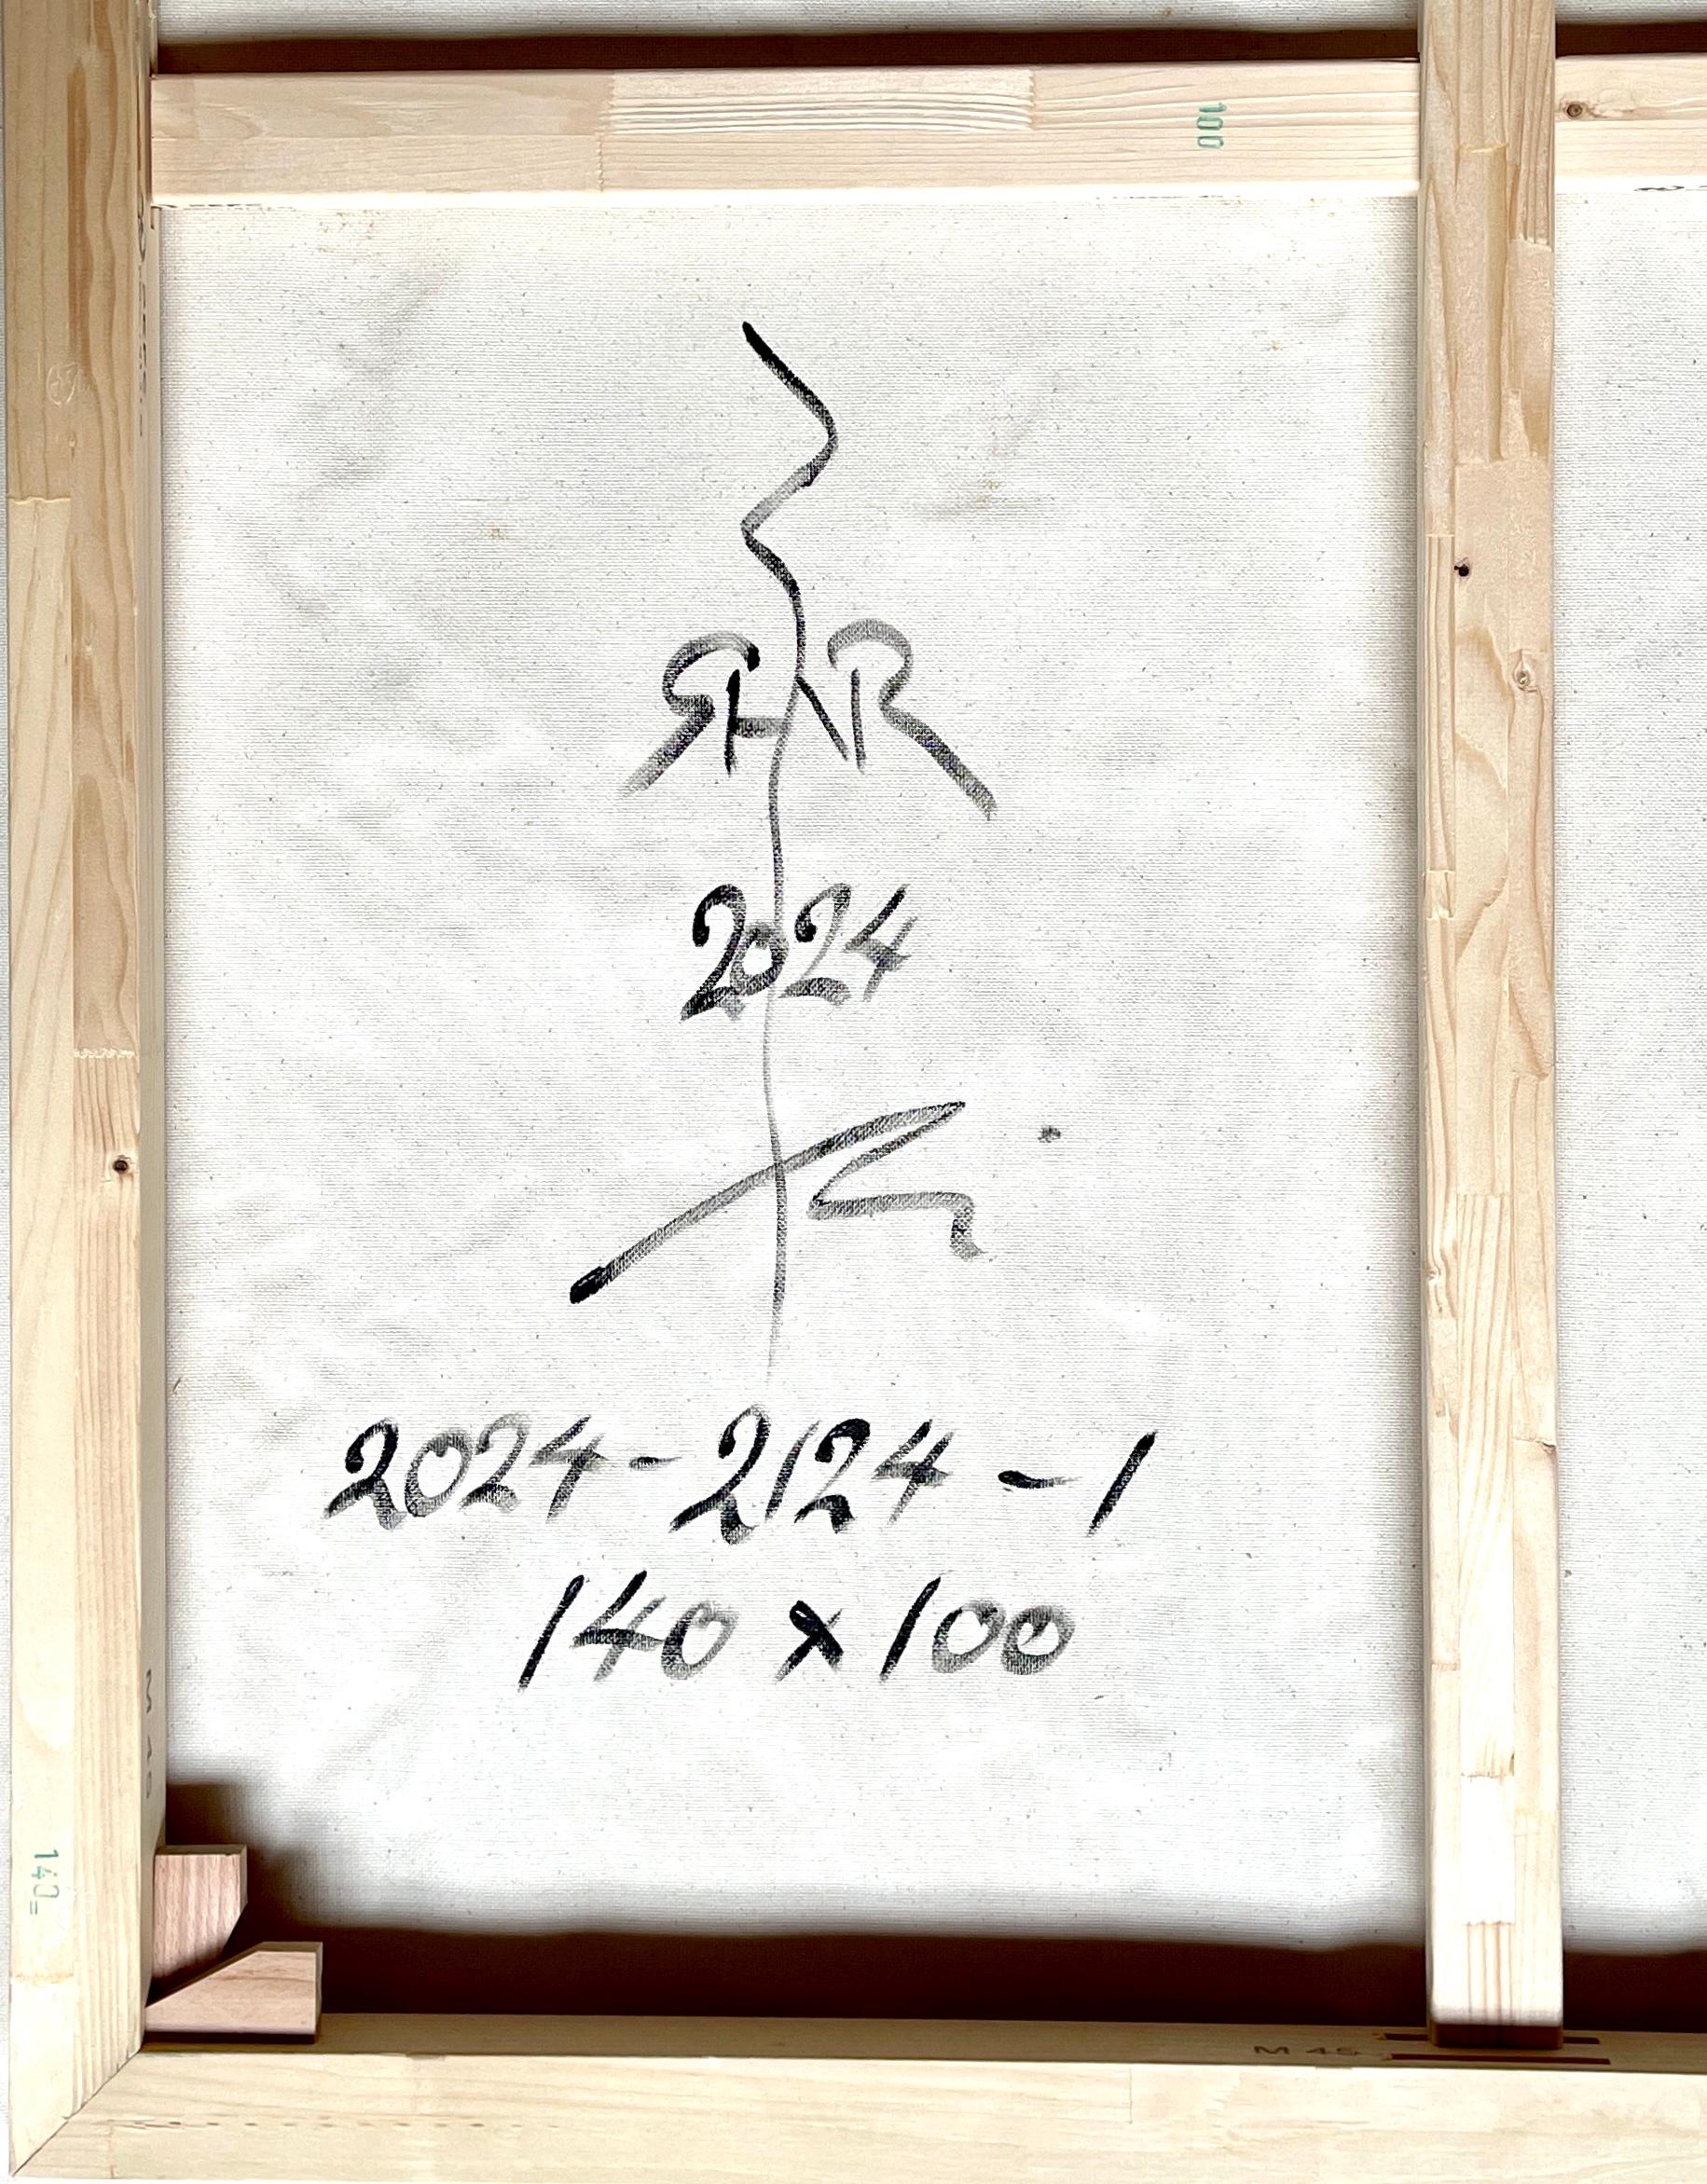 100
2024
2024-2124-1
140 x 100
140
M 45